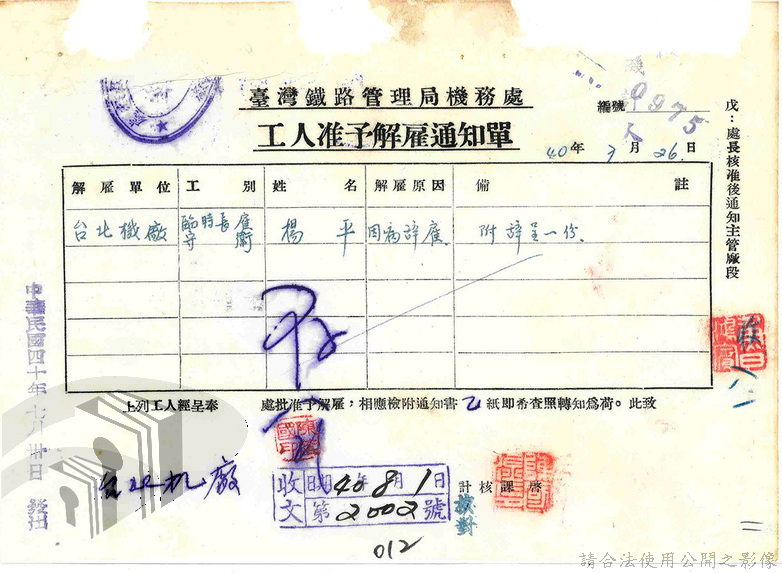 臺灣鐵路管理局機務處
工人准予解雇通知單
編號 9975
40年7月26日
戊：處長核准後通知主管廠段
解雇單位 工別 姓名 解雇原因 備註
台北機廠 臨時長雇守衛 楊平 因病辞雇、 附辞呈一份、
上列工人經呈奉 處批准予解雇；相應檢附通知書乙紙即希查照轉知為荷。此致
台北机廠
計核課 啓
核對
收文 日期 40年8月1日
第2002號
012
中華民國四十年七月卅日發出
請合法使用公開之影像